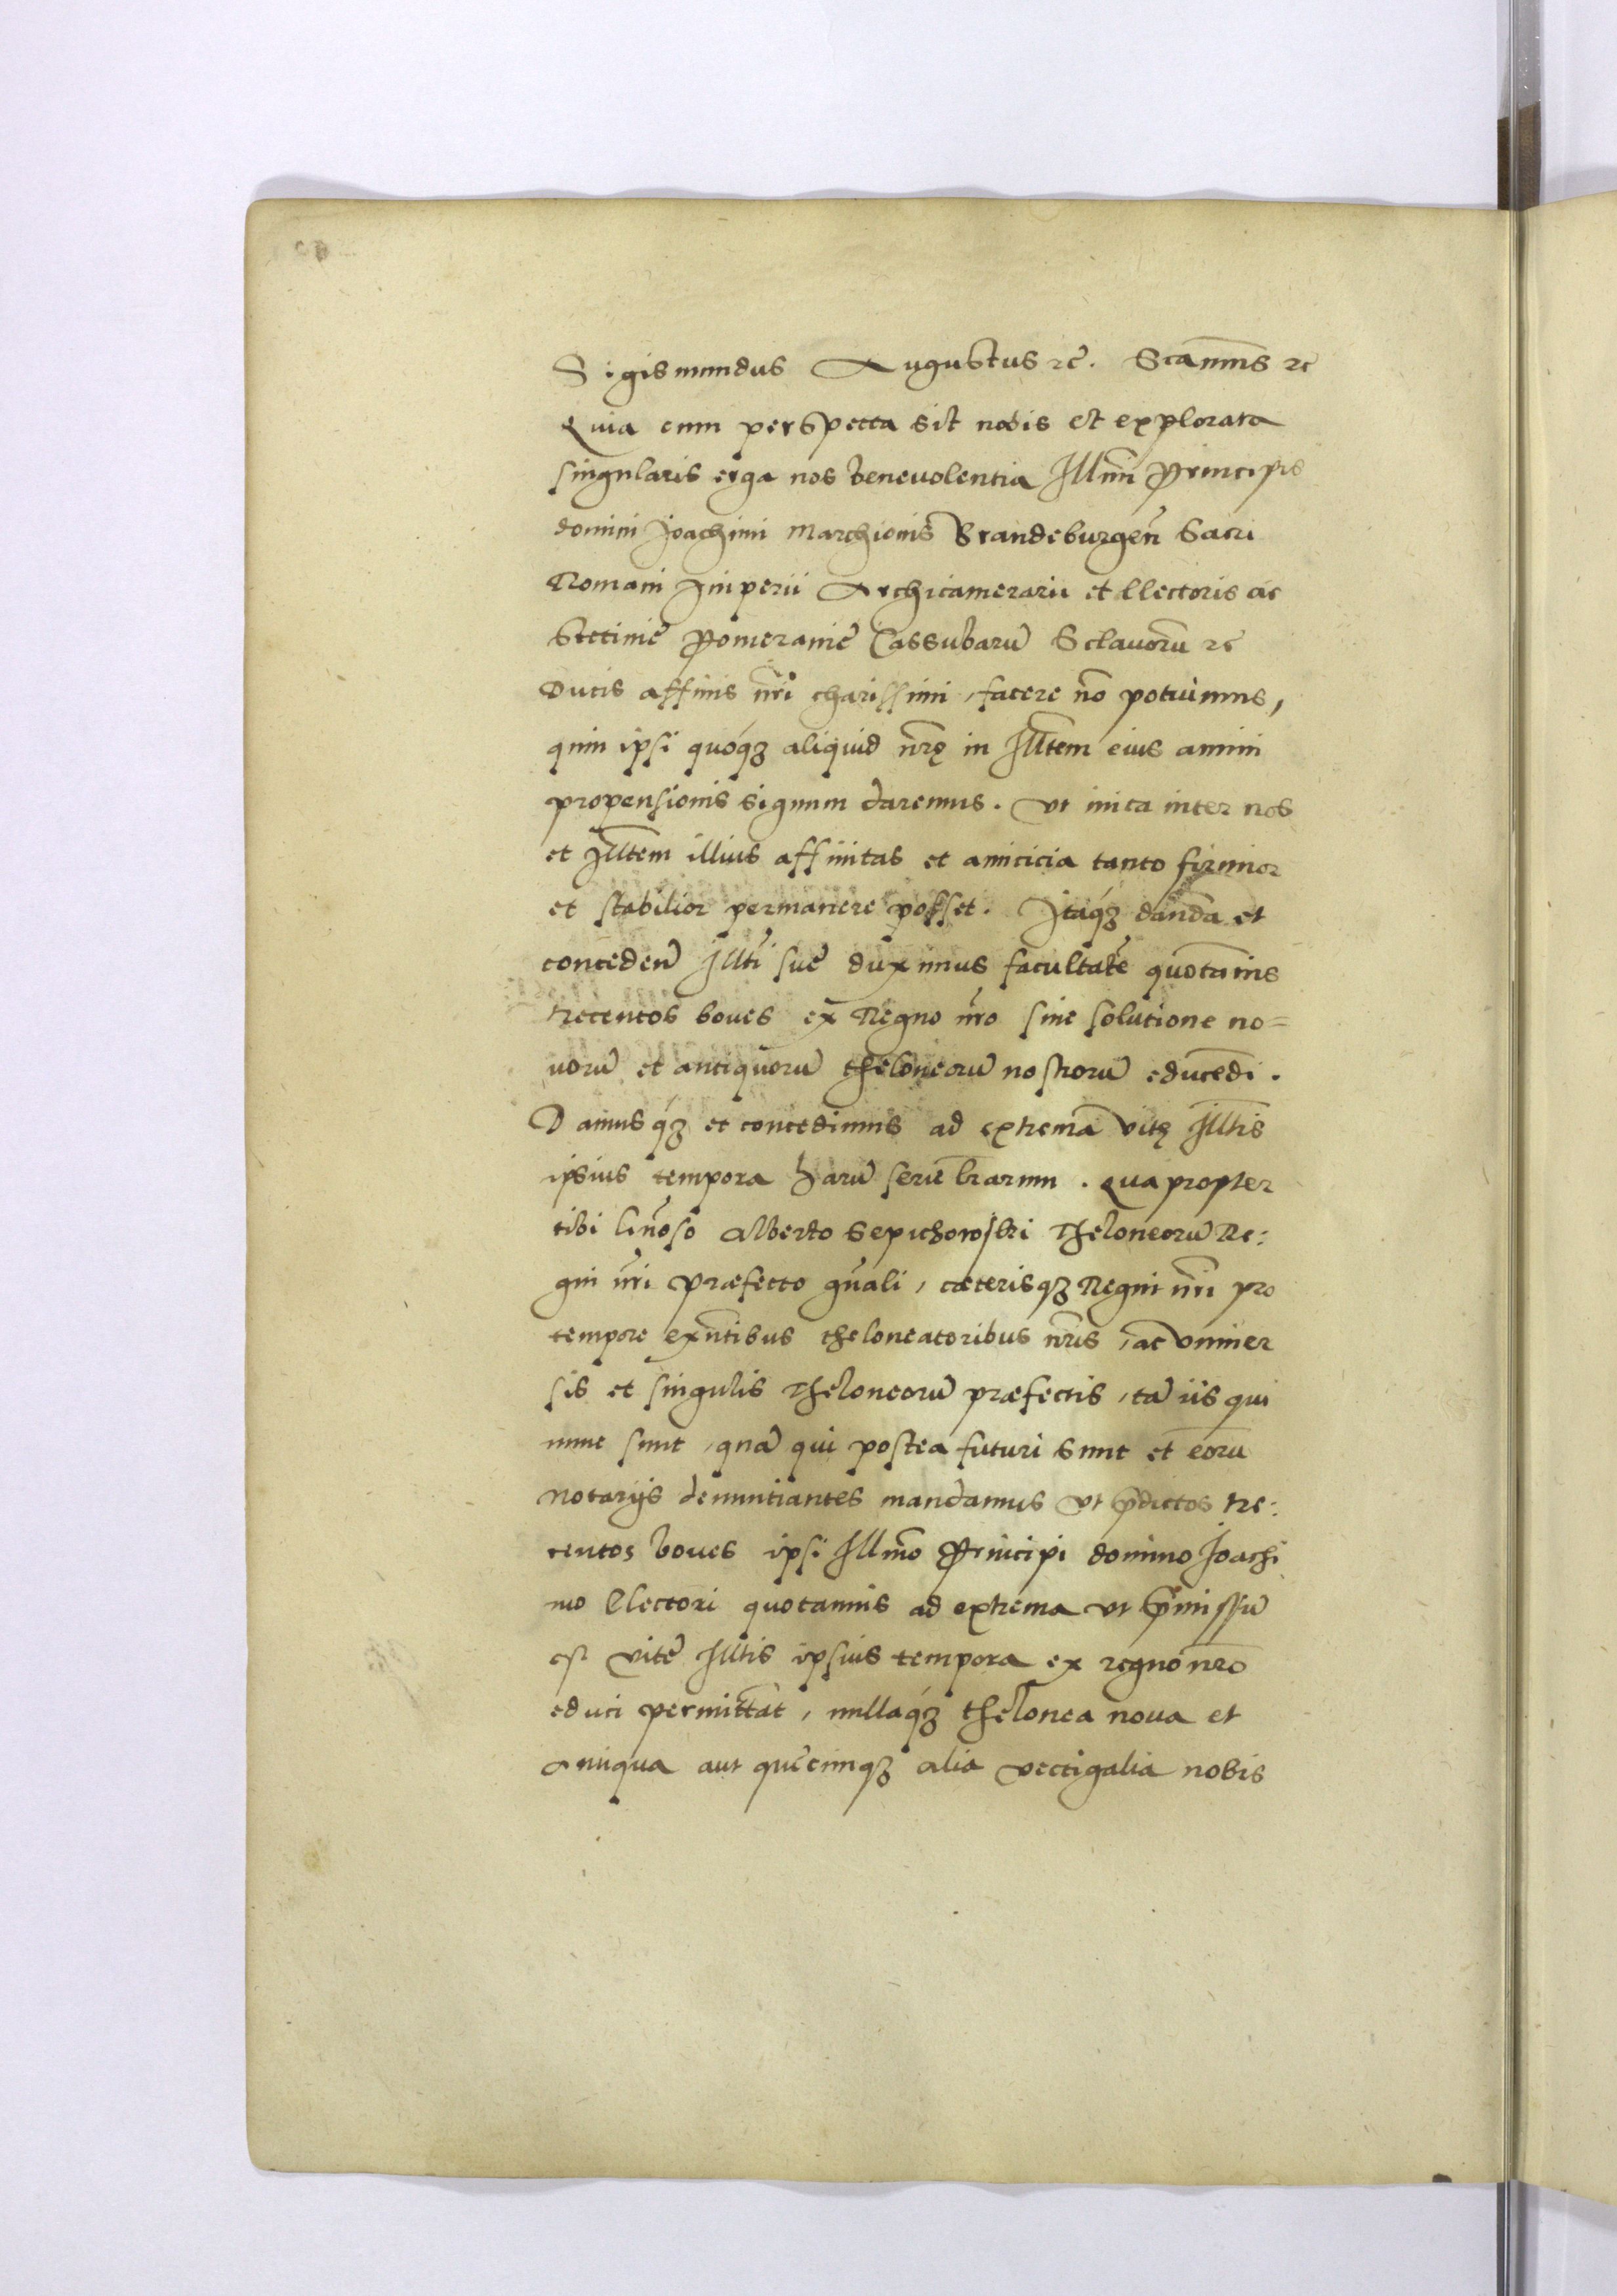 Sigismundus Augustus ꝛc̄. Scam̄us ꝛc
Quia cum perspecta sit nobis et explorata
singularis erga nos benevolentia Illm̄i Principis
domini Joachimi Marchionis Brandeburgen̄ Sacri
Romani Imperii Archicamerarii et Electoris ac
Stetinie Pomeranie Cassubarū Sclavorū ꝛc
Ducis affinis nr̄i charissimi, facere nō potuimus,
quin ipsi quóqȝ aliquid nr̄ę in Illt̄em eius animi
propensionis signum daremus. Vt inita inter nos
et Illt̄em illius affinitas et amicicia tanto firmior
et stabilior permanere posset. Itáqȝ dandā et
concedēn Illt̄i suę duximus facultatē quotannis
trecentos boues ex Regno nr̄o sine solutione no=
uorū et antiquorū theloneorū nostrorū educendi.
Damusqȝ et concedimus ad extrema vitę Illt̄is
ipsius tempora harū serie lr̄arum. Quapropter
tibi Gn̄oso Alberto Sepichowski Theloneorū Re:
gni nr̄i præfecto gn̄ali, cæterisqȝ Regni nr̄i pro
tempore exn̄tibus theloneatoribus nr̄is, ac vniuer
sis et singulis Theloneorū præfectis, tā iis qui
nunc sunt, quā qui postea futuri sunt et eorū
Notariis denuntiantes mandamus vt p̄dictos tre:
centos boues ipsi Illm̄o Principi domino Joachi
mo Electori quotannis ad extrema vt p̄missū
est vitę Illt̄is ipsius tempora ex regno nr̄o
educi permittāt, nullaqȝ thelonea noua et
antiqua aut quęcunqȝ alia vectigalia nobis